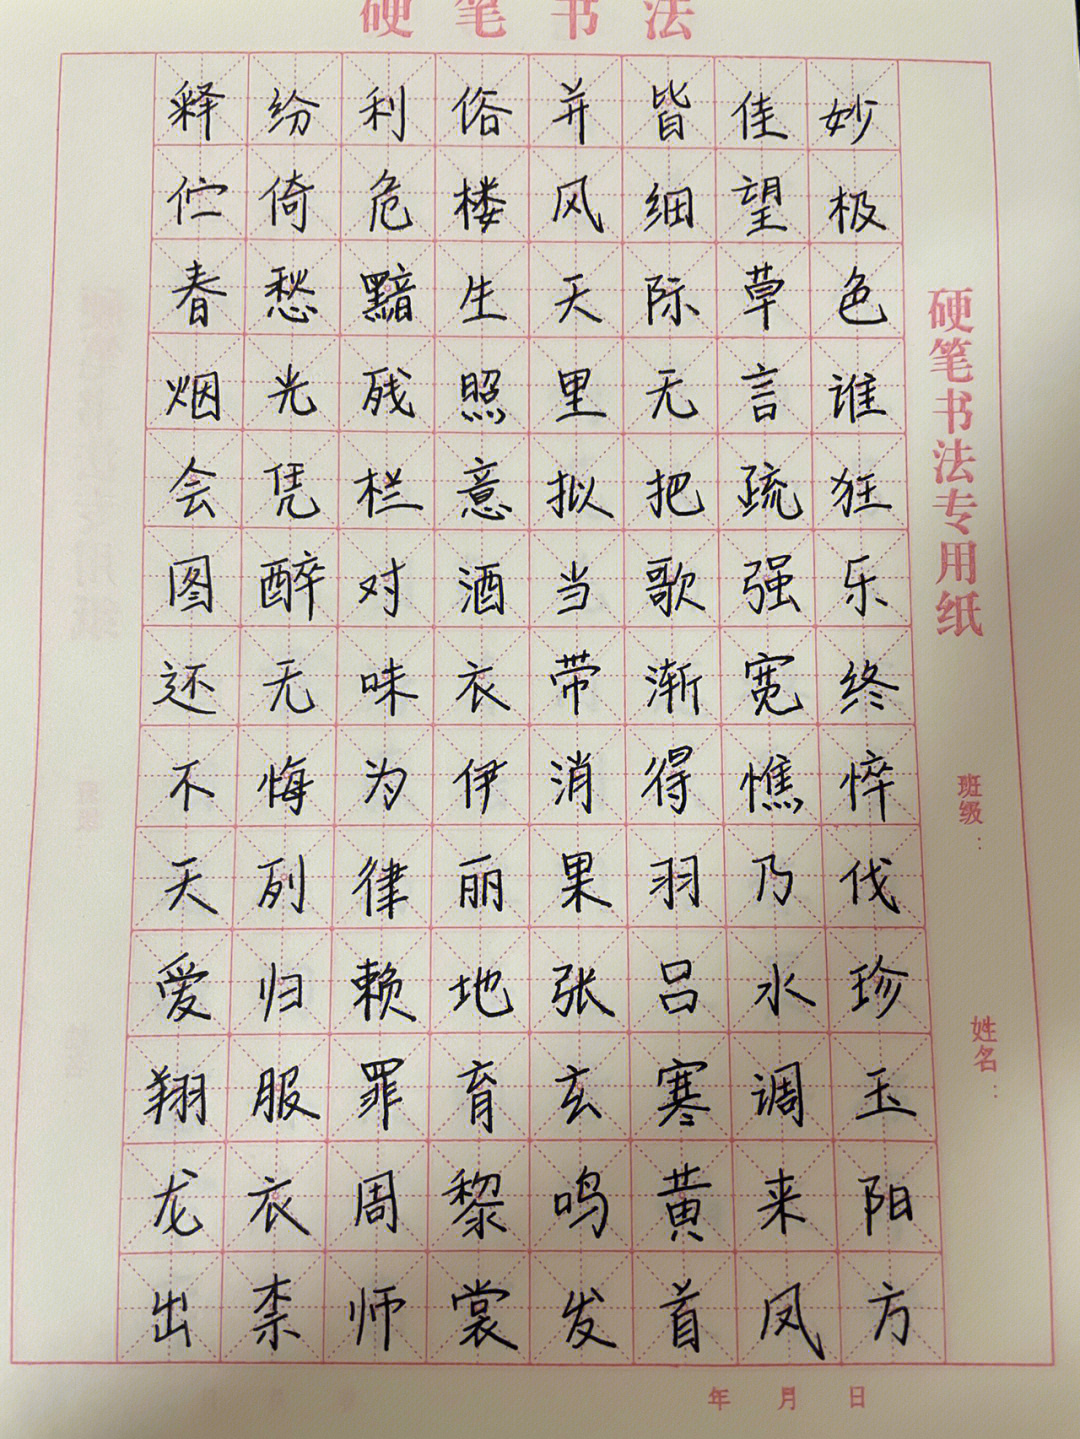 硬笔书法
释纷利俗并皆佳妙
伫倚危楼风细望极
春愁黯生天际草色
烟光残照里无言谁
会凭栏意拟把疏狂
图醉对酒当歌强乐
还无味衣带渐宽终
不悔为伊消得憔悴
天列律丽果羽乃伐
爱归赖地张吕水珍
翔服罪育玄寒调玉
龙衣周黎鸣黄来阳
出柰师裳发首凤方
硬笔书法专用纸
班级：
姓名：
年 月 日